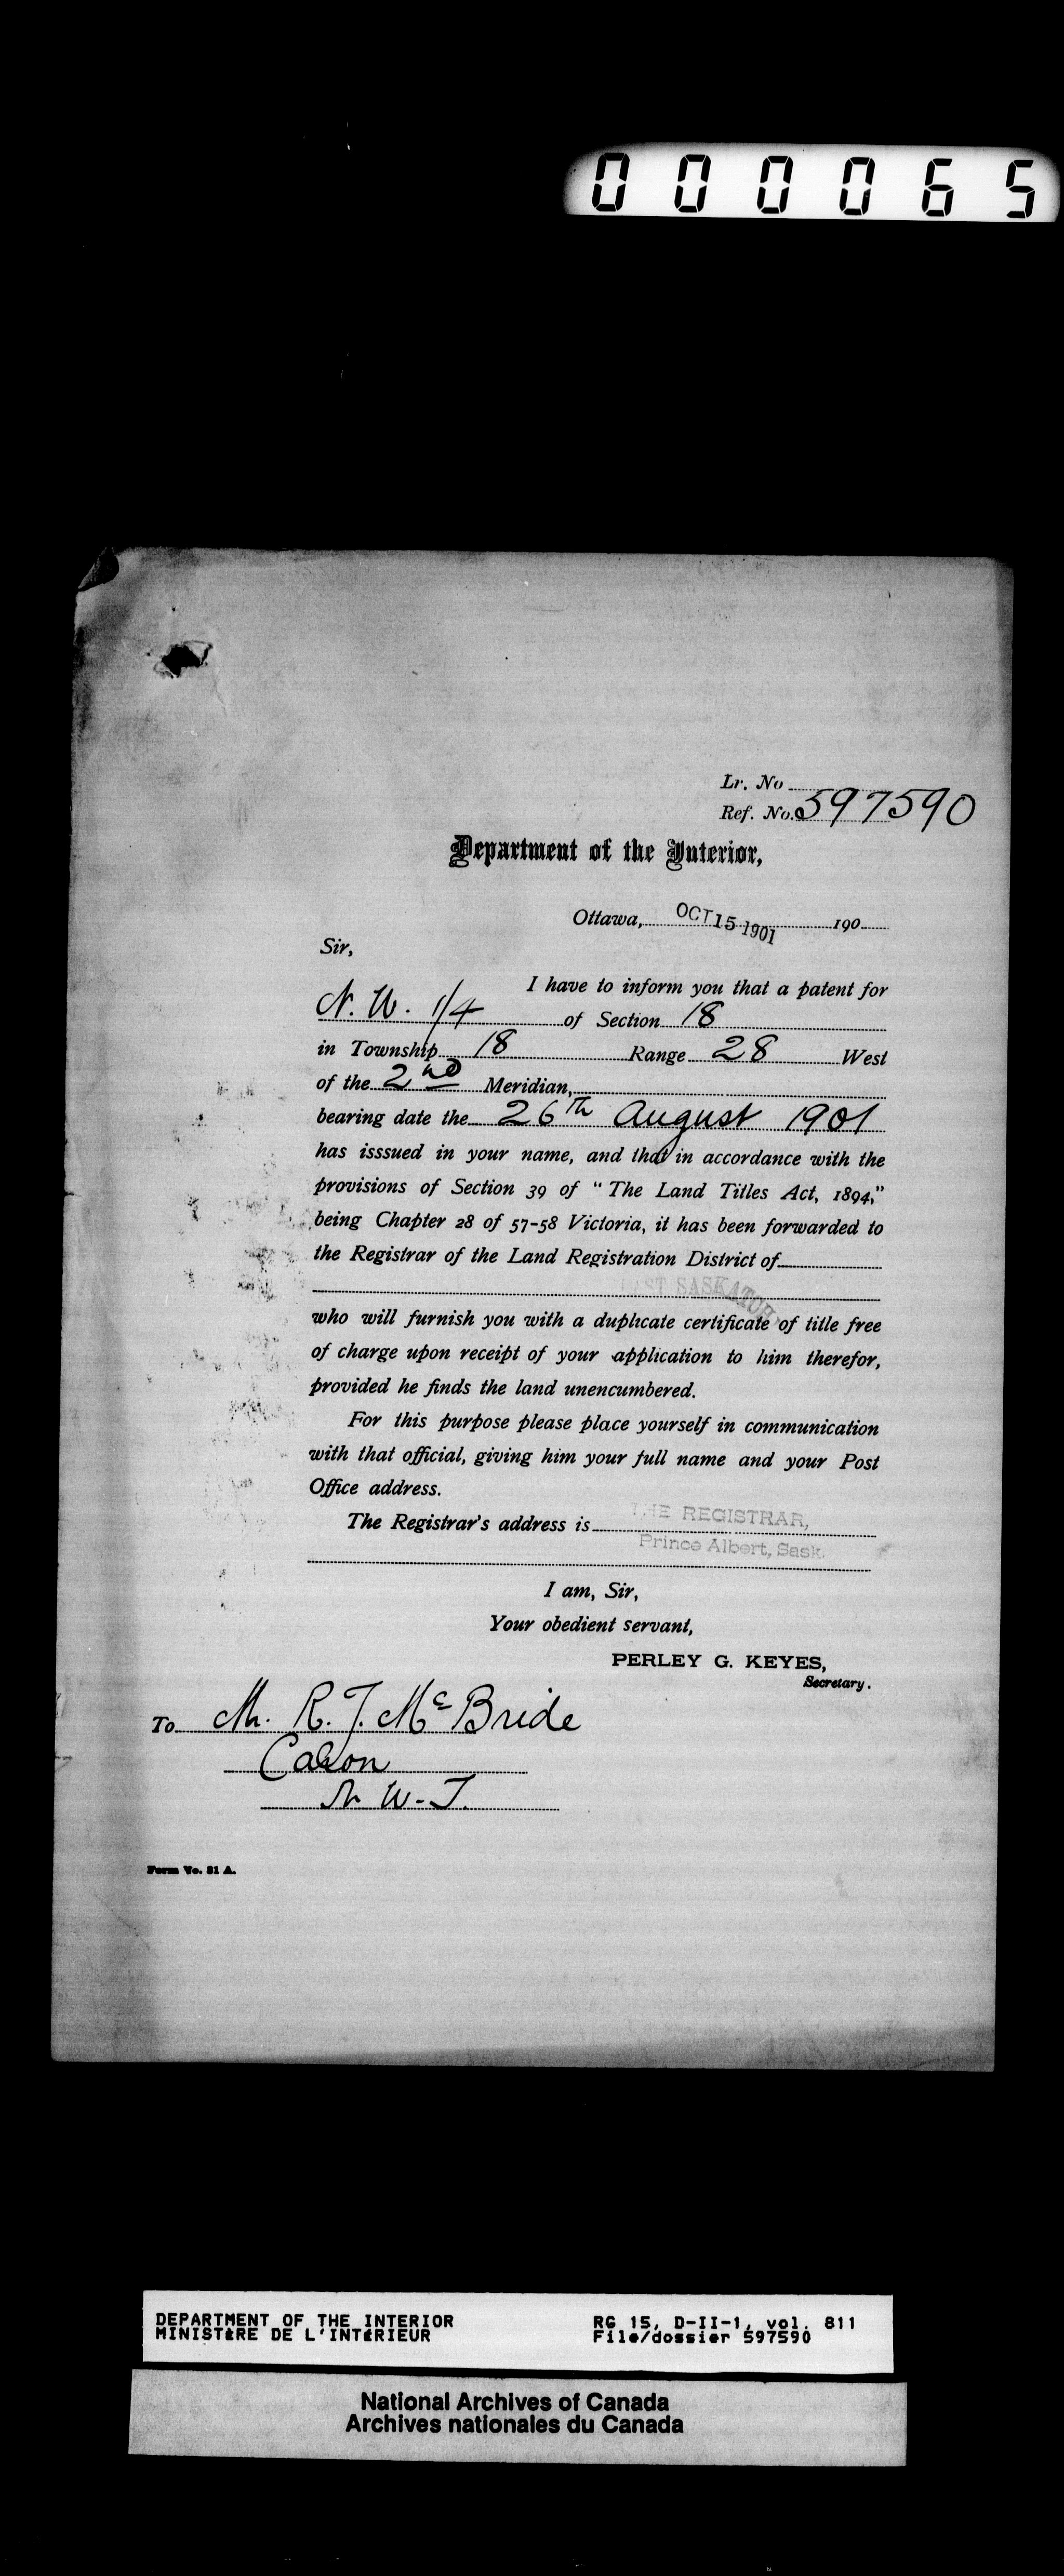 000065
Lr. No
Ref. No. 597590
Department of the Interior,
Ottawa, OCT 15 1901 190
Sir,
I have to inform you that a patent for
N. W. 1/4 of Section 18
in Township 18 Range 28 West
of the 2nd Meridian,
bearing date the 26th August 1901
has isssued in your name, and that in accordance with the
provisions of Section 39 of "The Land Titles Act, 1894,"
being Chapter 28 of 57-58 Victoria, it has been forwarded to
the Registrar of the Land Registration District of
EAST SASKATCH.
who will furnish you with a duplicate certificate of title free
of charge upon receipt of your application to him therefor,
provided he finds the land unencumbered.
For this purpose please place yourself in communication
with that official, giving him your full name and your Post
Office address.
The Registrar's address is THE REGISTRAR,
Prince Albert, Sask.
I am, Sir,
Your obedient servant,
PERLEY G. KEYES,
Secretary.
To Mr. R. J. McBride
Caron
N. W. T.
Form No. 31 A.
DEPARTMENT OF THE INTERIOR RG 15, D-II-1, vol. 811
MINISTÈRE DE L'INTÉRIEUR File/dossier 597590
National Archives of Canada
Archives nationales du Canada